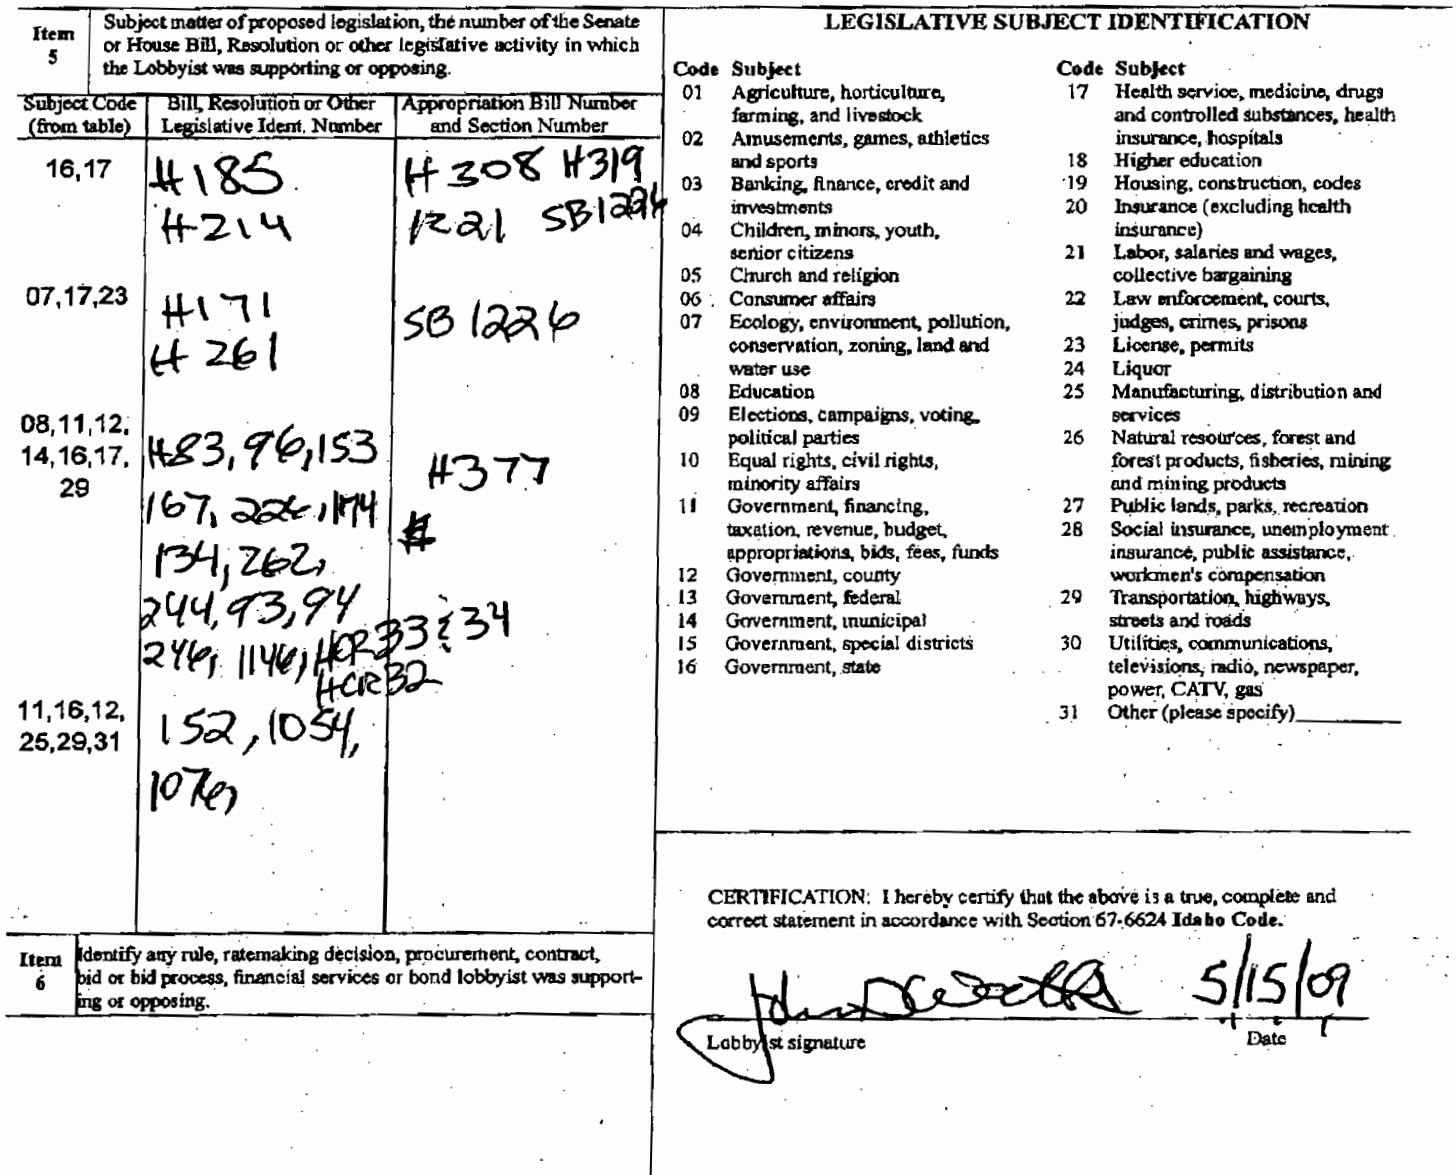 Item
5
Subject matter of proposed legislation, the number of the Senate
or House Bill, Resolution or other legislative activity in which
the Lobbyist was supporting or opposing.
Subject Code
(from table)
Bill, Resolution or Other
Legislative Ident. Number
Appropriation Bill Number
and Section Number
16,17
H185
H214
H308 H319
1221 SB1226
07,17,23
H171
H261
SB 1226
08,11,12,
14,16,17,
29
H83, 96, 153
167, 226, 174
134, 262,
244, 93, 94
246, 1146, HCR33 & 34
HCR32
H377
11,16,12,
25,29,31
152, 1054,
1076,
Item
6
Identify any rule, ratemaking decision, procurement, contract,
bid or bid process, financial services or bond lobbyist was support-
ing or opposing.
LEGISLATIVE SUBJECT IDENTIFICATION
Code Subject
01 Agriculture, horticulture,
farming, and livestock
02 Amusements, games, athletics
and sports
03 Banking, finance, credit and
investments
04 Children, minors, youth,
senior citizens
05 Church and religion
06 Consumer affairs
07 Ecology, environment, pollution,
conservation, zoning, land and
water use
08 Education
09 Elections, campaigns, voting,
political parties
10 Equal rights, civil rights,
minority affairs
11 Government, financing,
taxation, revenue, budget,
appropriations, bids, fees, funds
12 Government, county
13 Government, federal
14 Government, municipal
15 Government, special districts
16 Government, state
Code Subject
17 Health service, medicine, drugs
and controlled substances, health
insurance, hospitals
18 Higher education
19 Housing, construction, codes
20 Insurance (excluding health
insurance)
21 Labor, salaries and wages,
collective bargaining
22 Law enforcement, courts,
judges, crimes, prisons
23 License, permits
24 Liquor
25 Manufacturing, distribution and
services
26 Natural resources, forest and
forest products, fisheries, mining
and mining products
27 Public lands, parks, recreation
28 Social insurance, unemployment
insurance, public assistance,
workmen's compensation
29 Transportation, highways,
streets and roads
30 Utilities, communications,
televisions, radio, newspaper,
power, CATV, gas
31 Other (please specify)
CERTIFICATION: I hereby certify that the above is a true, complete and
correct statement in accordance with Section 67-6624 Idaho Code.
5/15/09
Lobbyist signature
Date